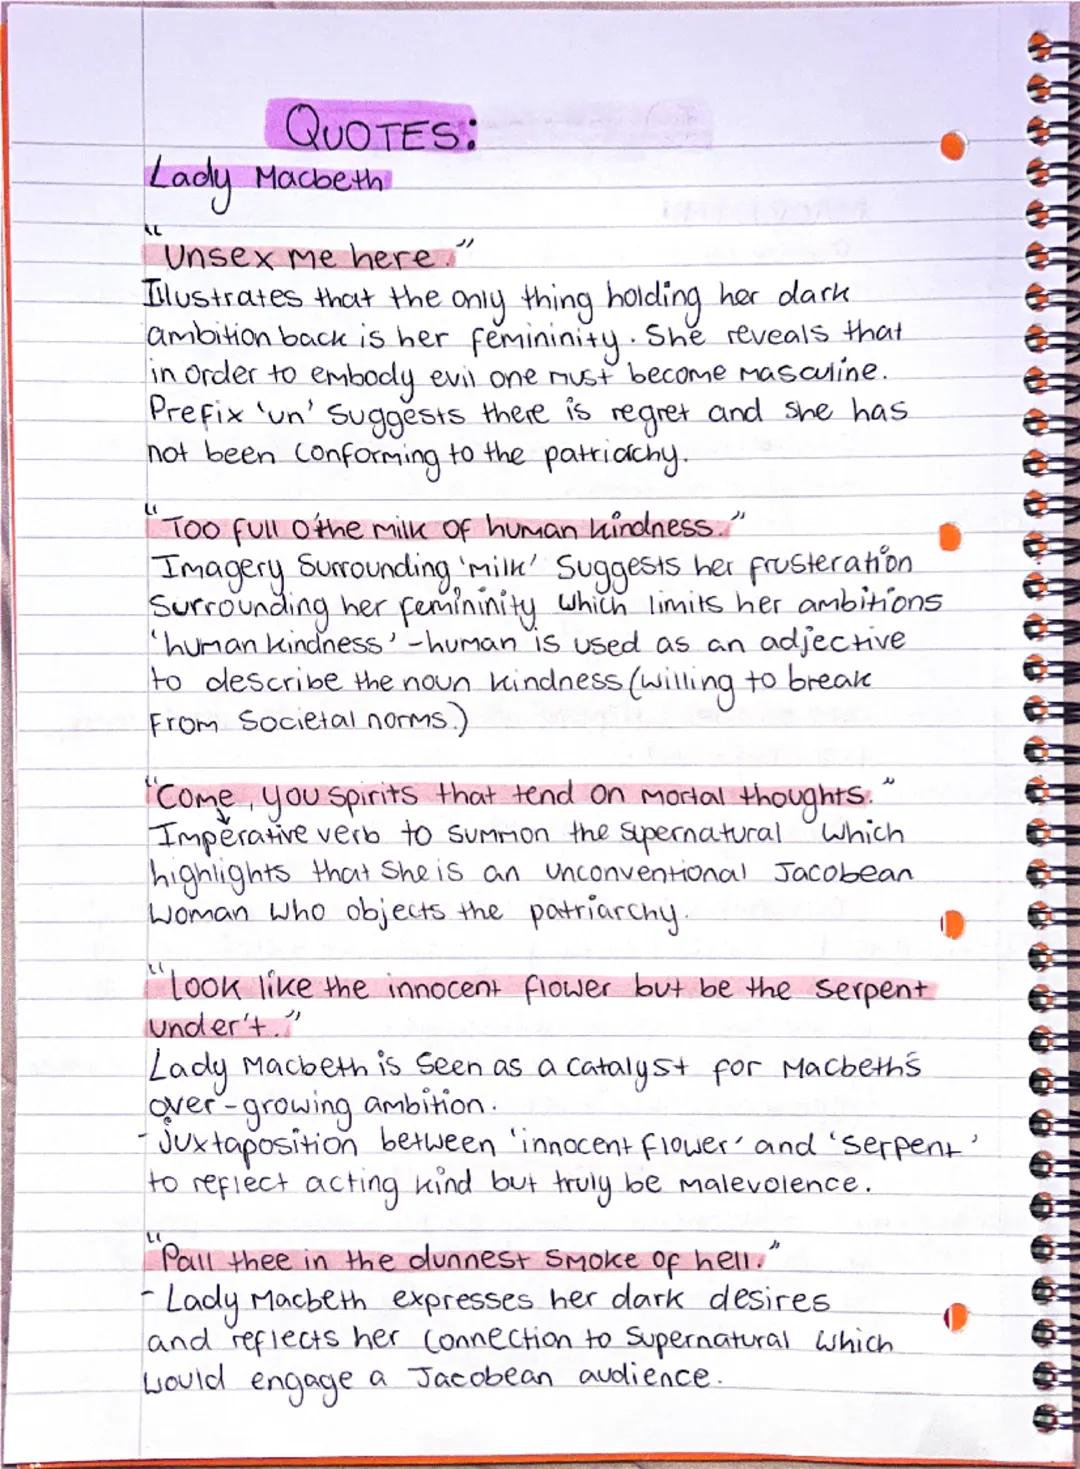 QUOTES:
Lady Macbeth
"Unsex me here."
Illustrates that the only thing holding her dark
ambition back is her femininity. She reveals that
in order to embody evil one must become masculine.
Prefix 'un' suggests there is regret and she has
not been conforming to the patriarchy.
"Too full o'the milk of human kindness."
Imagery surrounding 'milk' suggests her frusteration
surrounding her femininity which limits her ambitions
'human kindness' - human is used as an adjective
to describe the noun kindness (willing to break
from societal norms.)
"Come, you spirits that tend on mortal thoughts."
Imperative verb to summon the supernatural which
highlights that she is an unconventional Jacobean
woman who objects the patriarchy.
"Look like the innocent flower but be the serpent
under't."
Lady Macbeth is seen as a catalyst for Macbeth's
over-growing ambition.
- Juxtaposition between 'innocent flower' and 'serpent'
to reflect acting kind but truly be malevolence.
"Pall thee in the dunnest smoke of hell."
- Lady Macbeth expresses her dark desires
and reflects her connection to supernatural which
would engage a Jacobean audience.